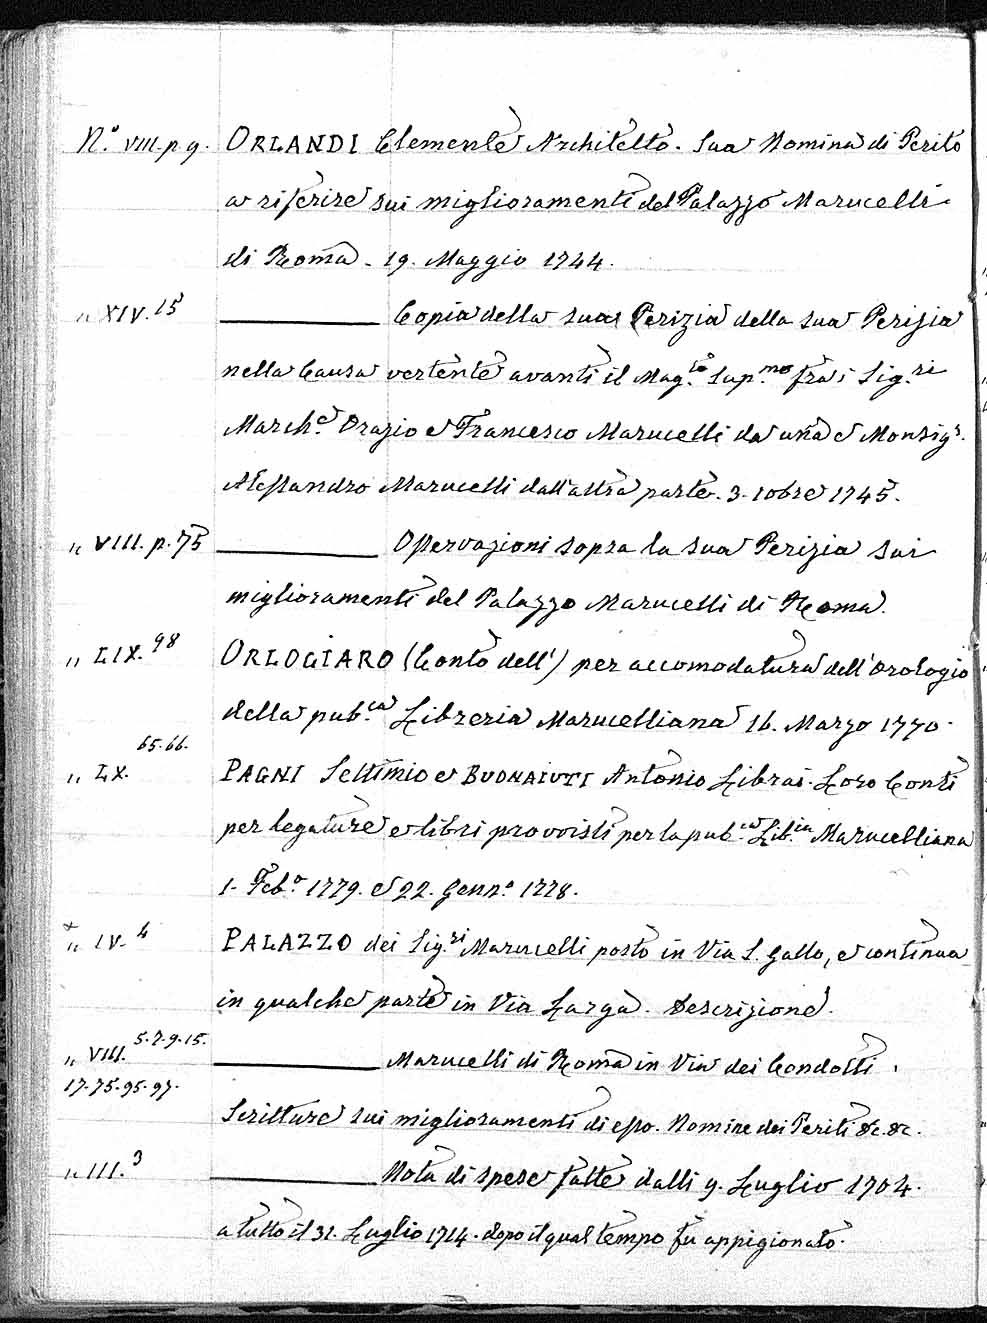 N.° VIII. p 9. ORLANDI Clemente Architetto. Sua Nomina di Perito
a riferire sui miglioramenti del Palazzo Marucelli
di Roma. 19. Maggio 1744.
„ XIV. 15 ———— Copia della sua Perizia della sua Perizia
nella Causa vertente avanti il Mag.to Sup.mo fra i Sig.ri
March.e Orazio e Francesco Marucelli da una e Monsig.r
Alessandro Marucelli dall'altra parte. 3. 10bre 1745.
„ VIII. p. 75 ———— Osservazioni sopra la sua Perizia sui
miglioramenti del Palazzo Marucelli di Roma.
„ LIX. 98 ORLOGIARO (Conto dell') per accomodatura dell'orologio
della pub.ca Libreria Marucelliana 16. Marzo 1770.
65. 66.
„ LX. PAGNI Settimio e BUONAIUTI Antonio Librai. Loro Conti
per legature e libri provvisti per la pub.ca Lib.ia Marucelliana
1. Feb.o 1779. e 22. Genn.o 1778.
„ IV. 4 PALAZZO dei Sig.ri Marucelli posto in Via S. Gallo, e continua
in qualche parte in Via Larga. Descrizione.
„ VIII. 5. 7. 9. 15. ———— Marucelli di Roma in Via dei Condotti.
17. 75. 95. 97.
Scritture sui miglioramenti di esso. Nomine dei Periti &c. &c.
„ III. 3 ———— Nota di spese fatte dalli 9. Luglio 1704.
a tutto il 31. Luglio 1714. dopo il qual tempo fu appigionato.